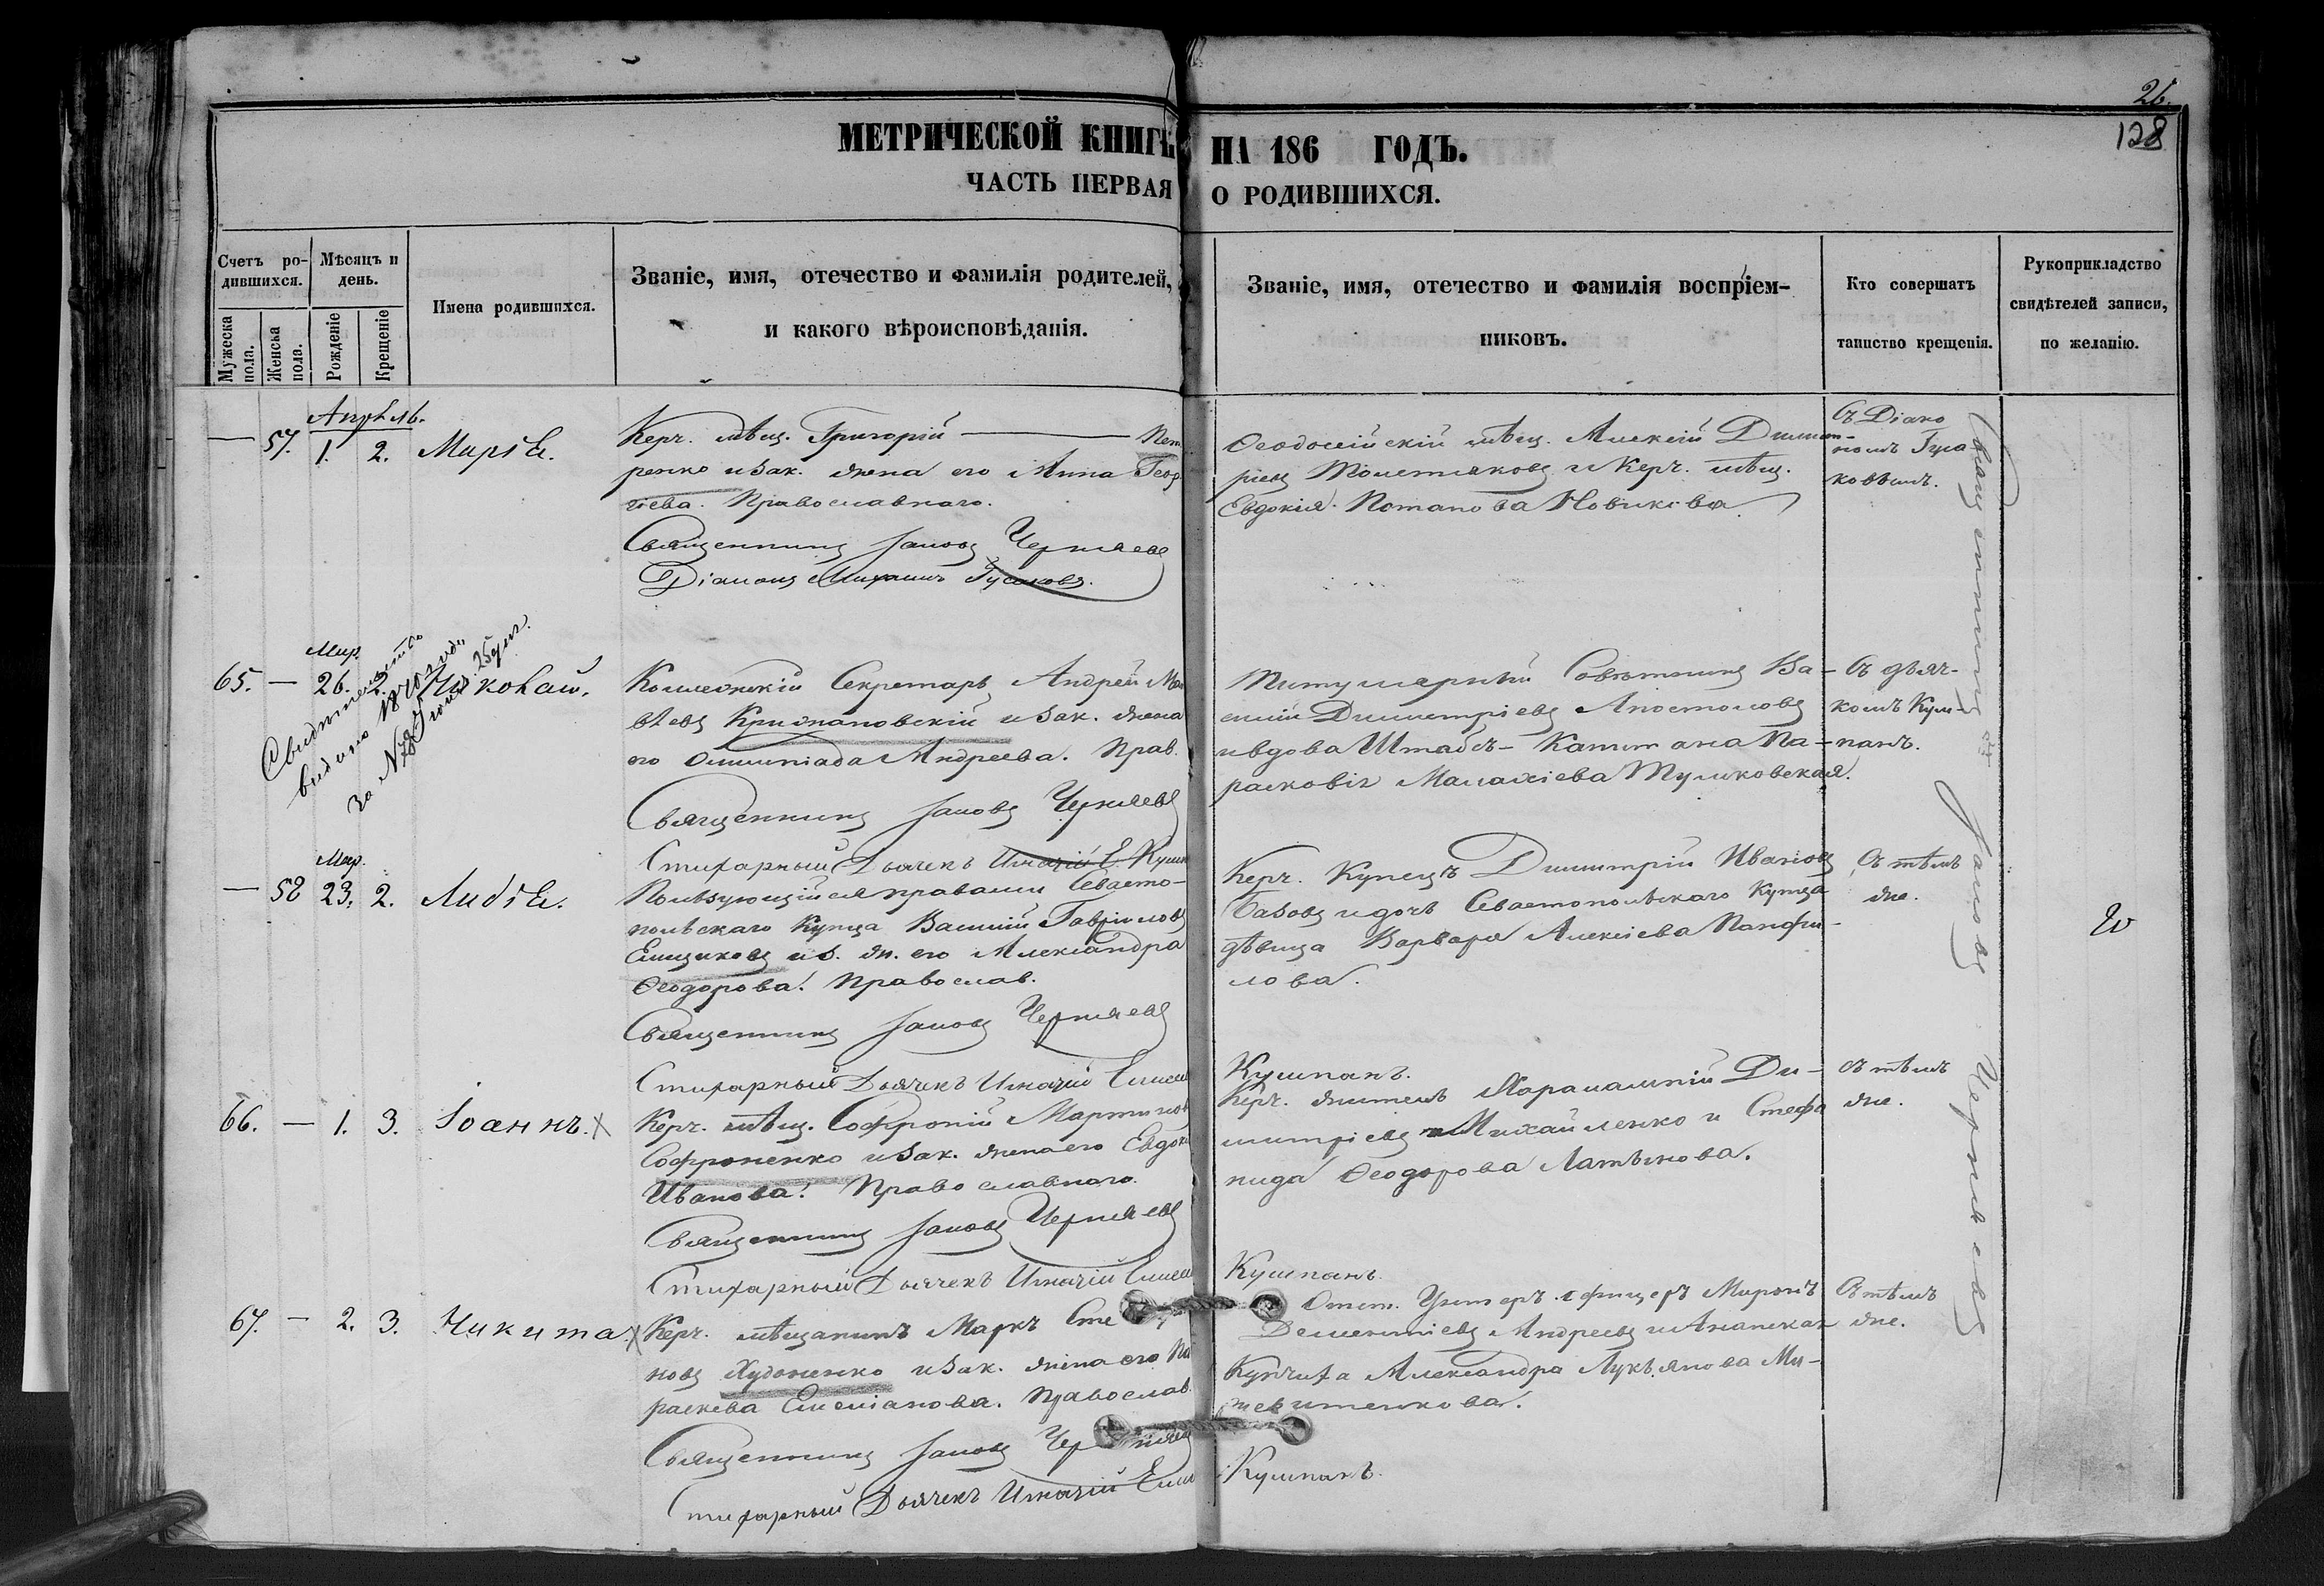 26.
128
МЕТРИЧЕСКОЙ КНИГѢ НА 186 ГОДЪ.
ЧАСТЬ ПЕРВАЯ О РОДИВШИХСЯ.
Счетъ ро-
дившихся.
Мужеска пола.
Женска пола.
Мѣсяцъ и
день.
Рожденіе
Крещеніе
Имена родившихся.
Званіе, имя, отечество и фамилія родителей,
и какого вѣроисповѣданія.
Званіе, имя, отечество и фамилія воспріем-
никовъ.
Кто совершатъ
таинство крещенія.
Рукоприкладство
свидѣтелей записи,
по желанію.
Апрѣль.
— 57. 1. 2. Марія.
Керч. мѣщ. Григорій — Пет
ренко и зак. жена его Анна Геор
гіева. Православнаго.
Священникъ Іаковъ Черняевъ
Діаконъ Михаилъ Гусаковъ.
Ѳеодосійскій мѣщ. Алексій Димит-
ріевъ Толстяковъ и Керч. мѣщ.
Евдокія Потапова Новикова
Съ Діако
номъ Гуса-
ковымъ.
Мар.
65. — 26. 2. Николай.
Свидѣтельство
видано 1870 года
за № 78 Іюня 25 дня.
Коллежскій Секретарь Андрей Мат
вѣевъ Крижановскій и зак. жена
его Олимпіада Андреева. Прав.
Священникъ Іаковъ Черняевъ
Стихарный Дьячекъ Игнатій Е. Кулп
Титулярный Совѣтникъ Ва-
силій Димитріевъ Апостоловъ
и вдова Штабсъ-Капитана Па-
расковія Малахіева Тулковская.
Съ дьяч-
комъ Кул-
панъ.
Мар.
— 58 23. 2. Лидія.
Пользующійся правами Севасто-
польскаго Купца Василій Гавріиловъ
Емщиковъ и з. ж. его Александра
Ѳеодорова. Православ.
Священникъ Іаковъ Черняевъ
Стихарный Дьячекъ Игнатій Емел
Керч. Купецъ Димитрій Ивановъ
Базовъ и дочь Севастопольскаго Купца
дѣвица Варвара Алексіева Панфи-
лова.
Кулпанъ.
Съ тѣмъ
же.
66. — 1. 3. Іоаннъ. ×
Керч. мѣщ. Софроній Мартинов
Софроненко и зак. жена его Евдок
Иванова. Православнаго.
Священникъ Іаковъ Черняевъ
Стихарный Дьячекъ Игнатій Емел
Керч. житель Харалампій Ди-
митріевъ Михайленко и Стефа
нида Ѳеодорова Латышова.
Кулпанъ.
Съ тѣмъ
же.
67. — 2. 3. Никита. ×
Керч. мѣщанинъ Маркъ Сте
новъ Худоненко и зак. жена его Па
раскева Емеліанова. Православ.
Священникъ Іаковъ Черняев
Стихарный Дьячекъ Игнатій Емел
Отст. Унтеръ-офицеръ Миронъ
Дементіевъ Андреевъ и Анапская
Купчиха Александра Лукьянова
Кулпанъ.
Съ тѣмъ
же.
Священникъ Іаковъ Черняевъ